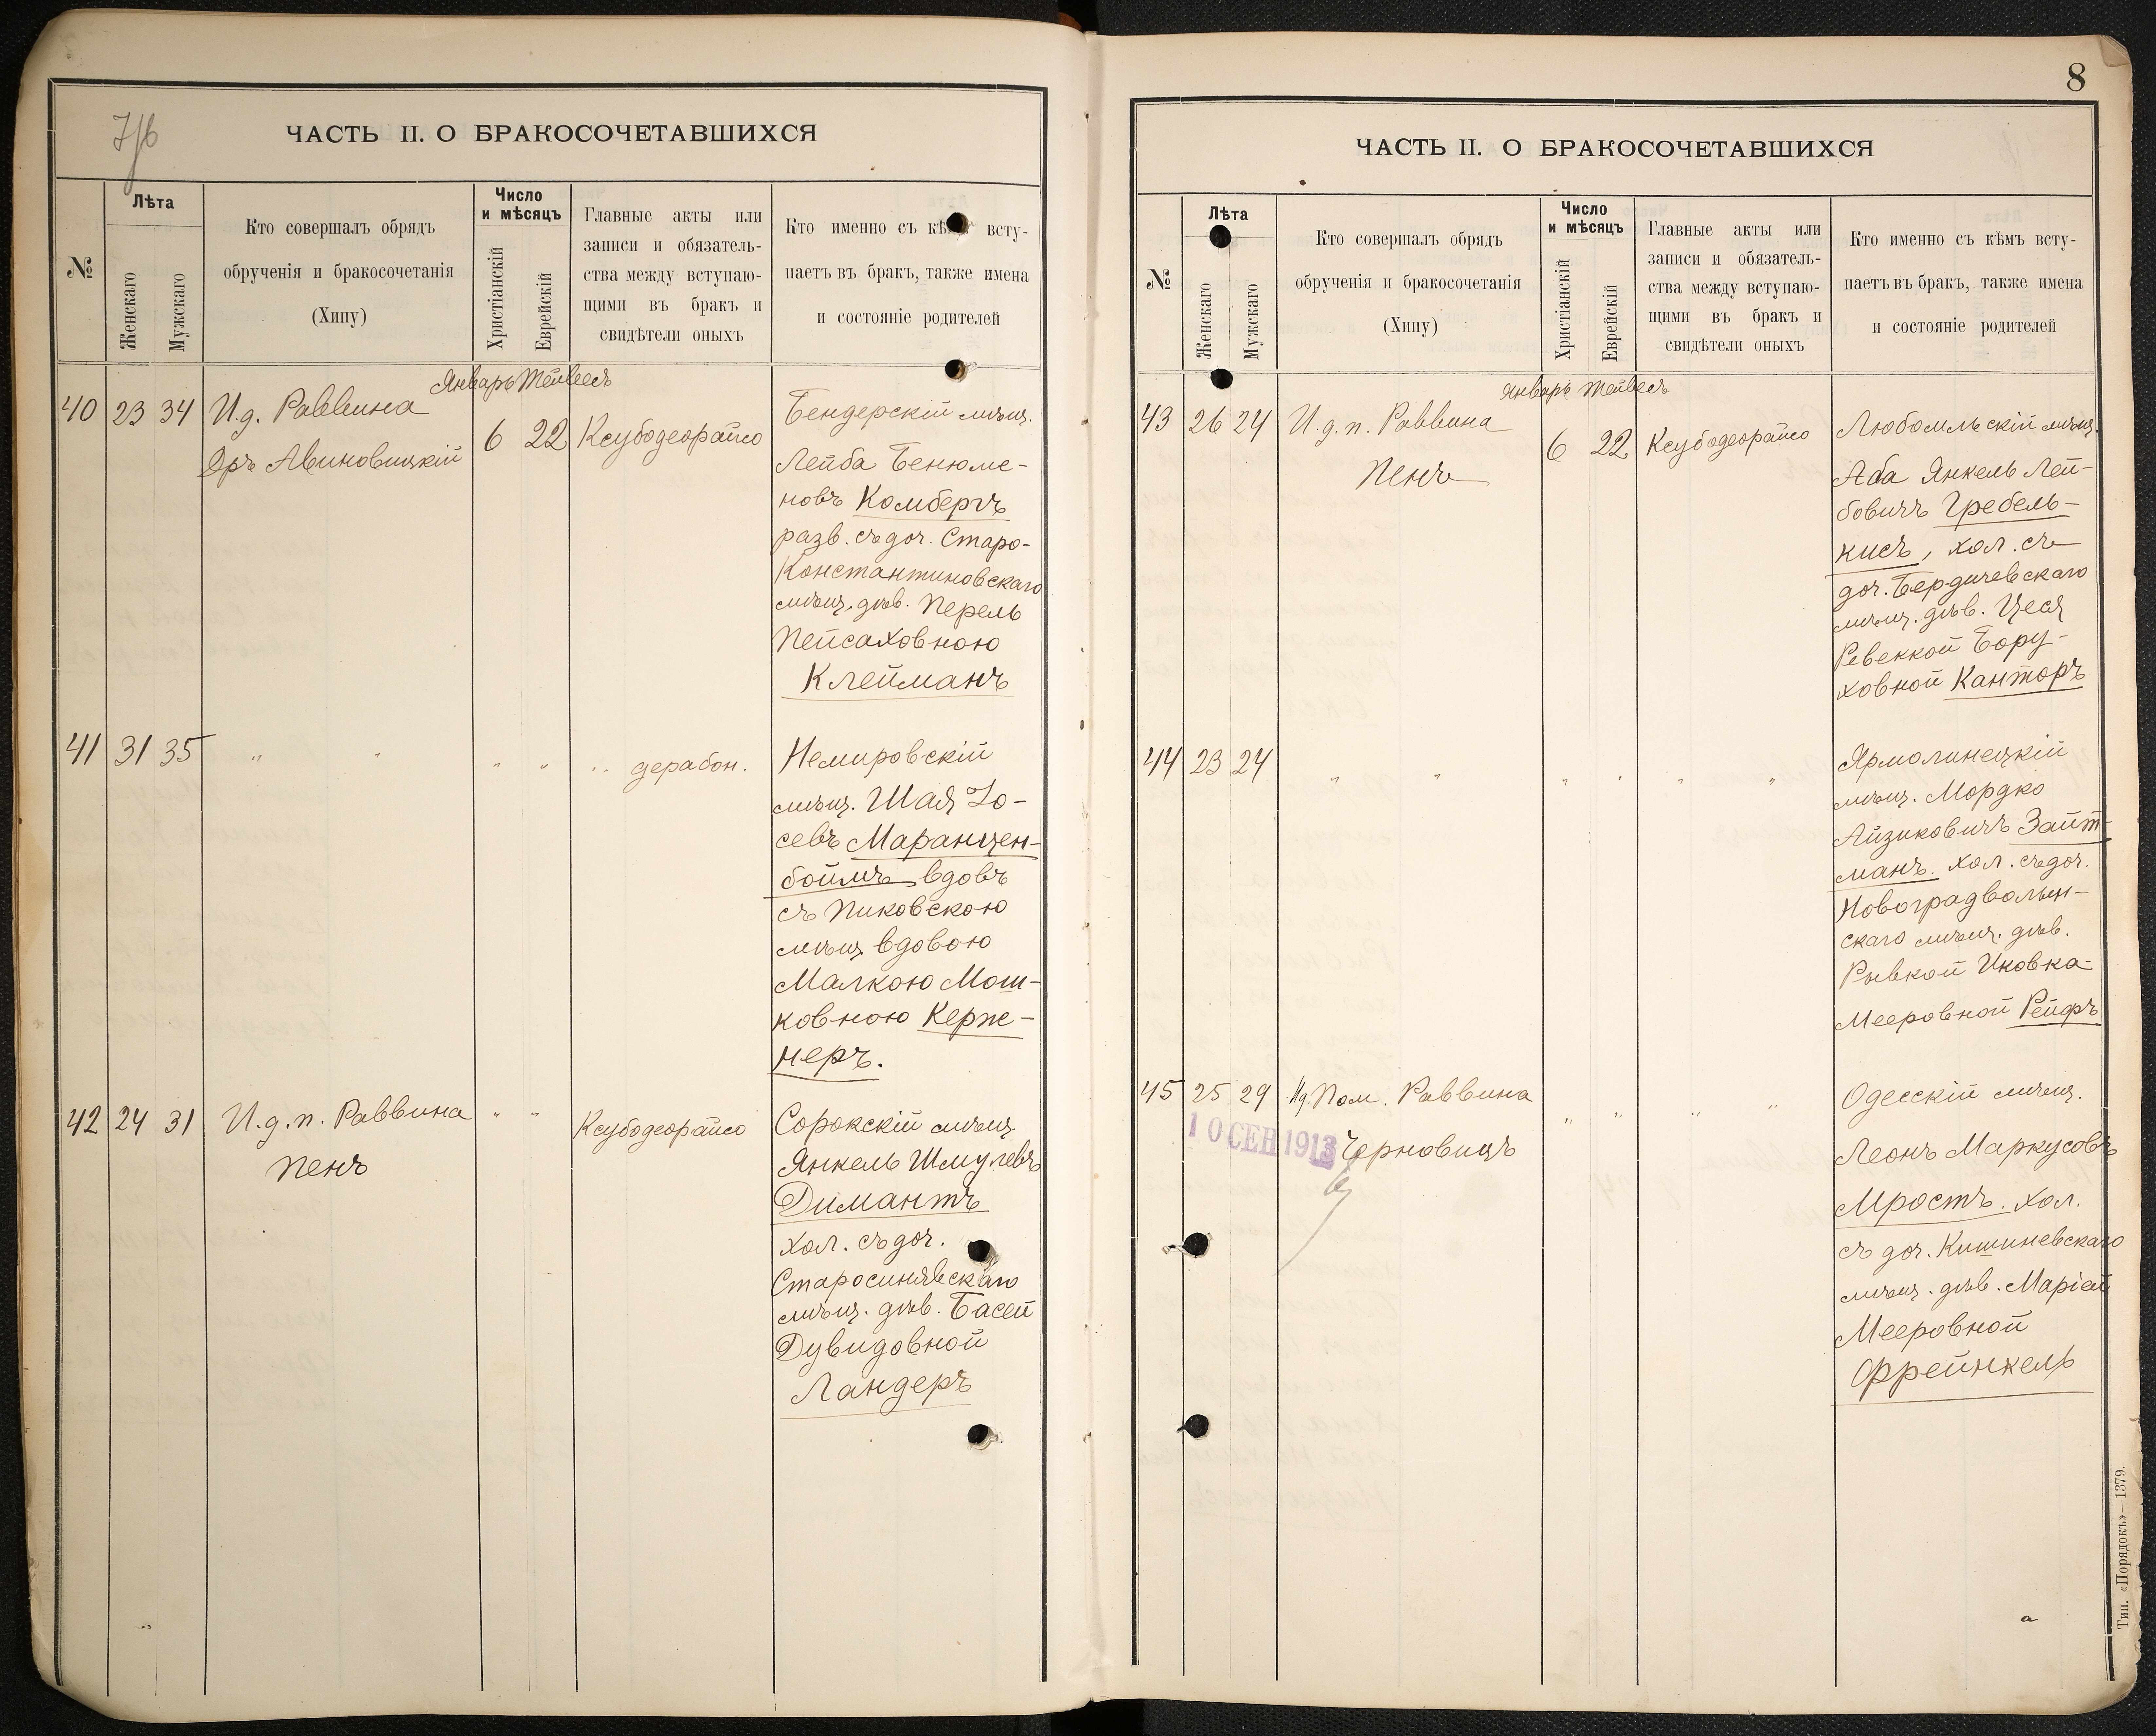 7/б
ЧАСТЬ II. О БРАКОСОЧЕТАВШИХСЯ
№
Лѣта
Женскаго
Мужскаго
Кто совершалъ обрядъ
обрученія и бракосочетанія
(Хипу)
Число
и мѣсяцъ
Христіанскій
Еврейскій
Главные акты или
записи и обязатель-
ства между вступаю-
щими въ бракъ и
свидѣтели оныхъ
Кто именно съ кѣмъ всту-
паетъ въ бракъ, также имена
и состояніе родителей
Январь Тейвесъ
40 23 34 И.д. Раввина 6 22 Ксубодеорайсо
Дръ Авиновицкій
Бендерскій мѣщ.
Лейба Бенюме-
новъ Комбергъ
разв. съ доч. Старо-
Константиновскаго
мѣщ. дѣв. Перель
Пейсаховною
Клейманъ
41 31 35 " " " " " дерабон.
Немировскій
мѣщ. Шая Іо-
севъ Маранцен-
боймъ вдовъ
съ Пиковскою
мѣщ. вдовою
Малкою Мош-
ковною Керже-
неръ.
42 24 31 И.д.п. Раввина " " Ксубодеорайсо
Пенъ
Сорокскій мѣщ.
Янкель Шмулевъ
Димантъ
хол. съ доч.
Старосинявскаго
мѣщ. дѣв. Басей
Дувидовной
Ландеръ
8
ЧАСТЬ II. О БРАКОСОЧЕТАВШИХСЯ
№
Лѣта
Женскаго
Мужскаго
Кто совершалъ обрядъ
обрученія и бракосочетанія
(Хипу)
Число
и мѣсяцъ
Христіанскій
Еврейскій
Главные акты или
записи и обязатель-
ства между вступаю-
щими въ бракъ и
свидѣтели оныхъ
Кто именно съ кѣмъ всту-
паетъ въ бракъ, также имена
и состояніе родителей
Январь Тейвесъ
43 26 24 И.д.п. Раввина 6 22 Ксубодеорайсо
Пенъ
Любомльскій мѣщ.
Аба Янкель Лей-
бовичъ Гребель-
кисъ, хол. съ
доч. Бердичевскаго
мѣщ. дѣв. Цеся
Ревеккой Бору-
ховной Канторъ
44 23 24 " " " " " "
Ярмолинецкій
мѣщ. Мордко
Айзиковичъ Зайт-
манъ. хол. съ доч.
Новоградволын-
скаго мѣщ. дѣв.
Рывкой Иковка-
Мееровной Рейфъ
45 25 29 И.д. Пом. Раввина " " " "
Черновицъ
10 СЕН 1913
Одесскій мѣщ.
Леонъ Маркусовъ
Мростъ. хол.
съ доч. Кишиневскаго
мѣщ. дѣв. Маріей
Мееровной
Фрейнкель
Тип. «Порядокъ»—1379.